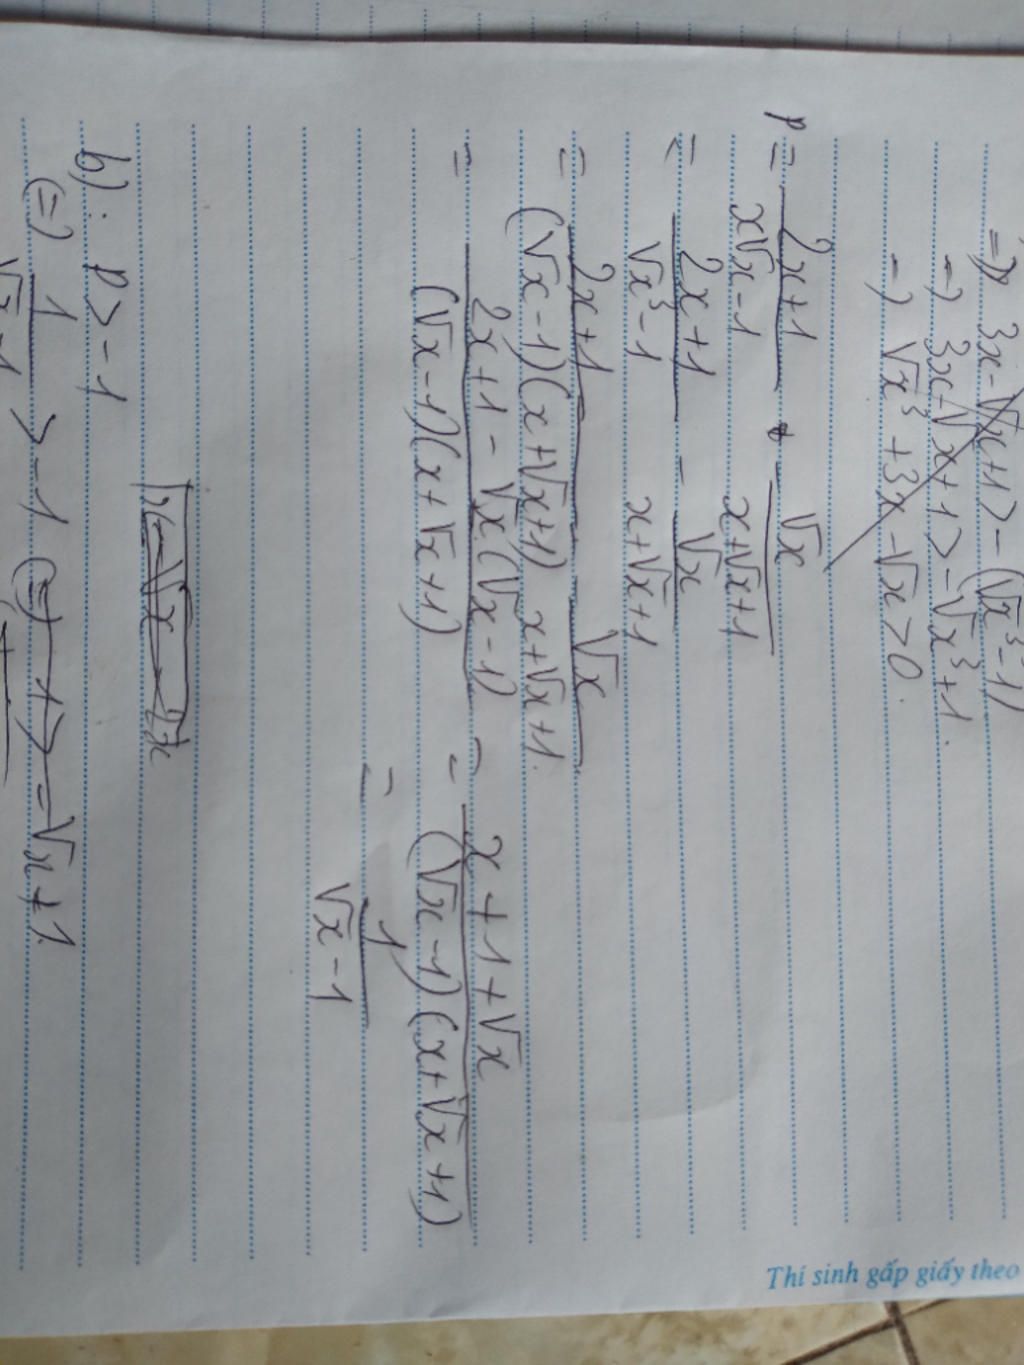 => 3x - √x + 1 > - (√x³ - 1)
=> 3x - √x + 1 > - √x³ + 1.
=> √x³ + 3x - √x > 0.
P = (2x+1)/(x√x - 1) - √x/(x+√x+1)
= (2x+1)/(√x³ - 1) - √x/(x+√x+1)
= (2x+1)/((√x - 1)(x+√x+1)) - √x/(x+√x+1).
= (2x+1 - √x(√x - 1))/((√x - 1)(x+√x+1)) = (x+1+√x)/((√x - 1)(x+√x+1))
= 1/(√x - 1)
b): P > -1
(=) 1/(√x - 1) > -1 (=) 1 > = √x + 1.
Thí sinh gấp giấy theo